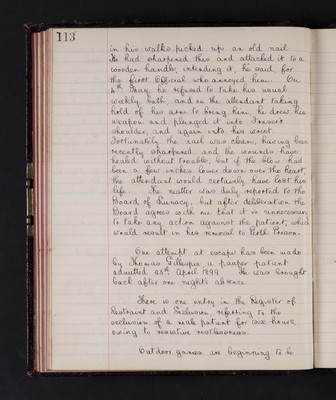 113
in his walks picked up an old nail.
He had sharpened this and attached it to a
wooden handle, intending it, he said, for
the first Official who annoyed him. On
4th May he refused to take his usual
weekly bath, and on the attendant taking
hold of his arm to bring him, he drew his
weapon and plunged it into Fraser's
shoulder, and again into his wrist.
Fortunately the nail was clean, having been
recently sharpened and the wounds have
healed without trouble, but if the blow had
been a few inches lower down over the heart,
the attendant would certainly have lost his
life. The matter was duly reported to the
Board of Lunacy, but after deliberation the
Board agrees with me that it is unnecessary
to take any action against the patient, which
would result in his removal to Perth Prison.
One attempt at escape has been made
by Thomas Gillespie a pauper patient
admitted 25th April 1899. He was brought
back after one night's absence.
There is one entry in the Register of
Restraint and Seclusion, referring to the
seclusion of a male patient for six hours,
owing to resistive restlessness.
Outdoor games are beginning to be